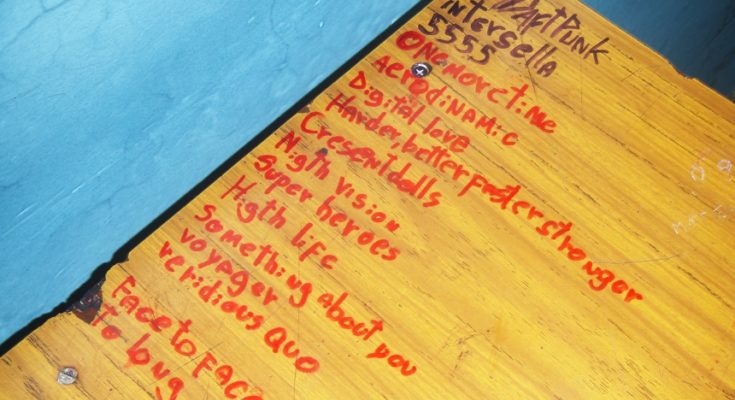 DaftPunk
intersella
5555
Onemoretime
AerodiNAMic
Digital love
Harder,better,faster,stronger
Cresentdolls
Nigth vision
Super heroes
Higth life
Something about you
voyager
veridious Quo
Face to Face
To long